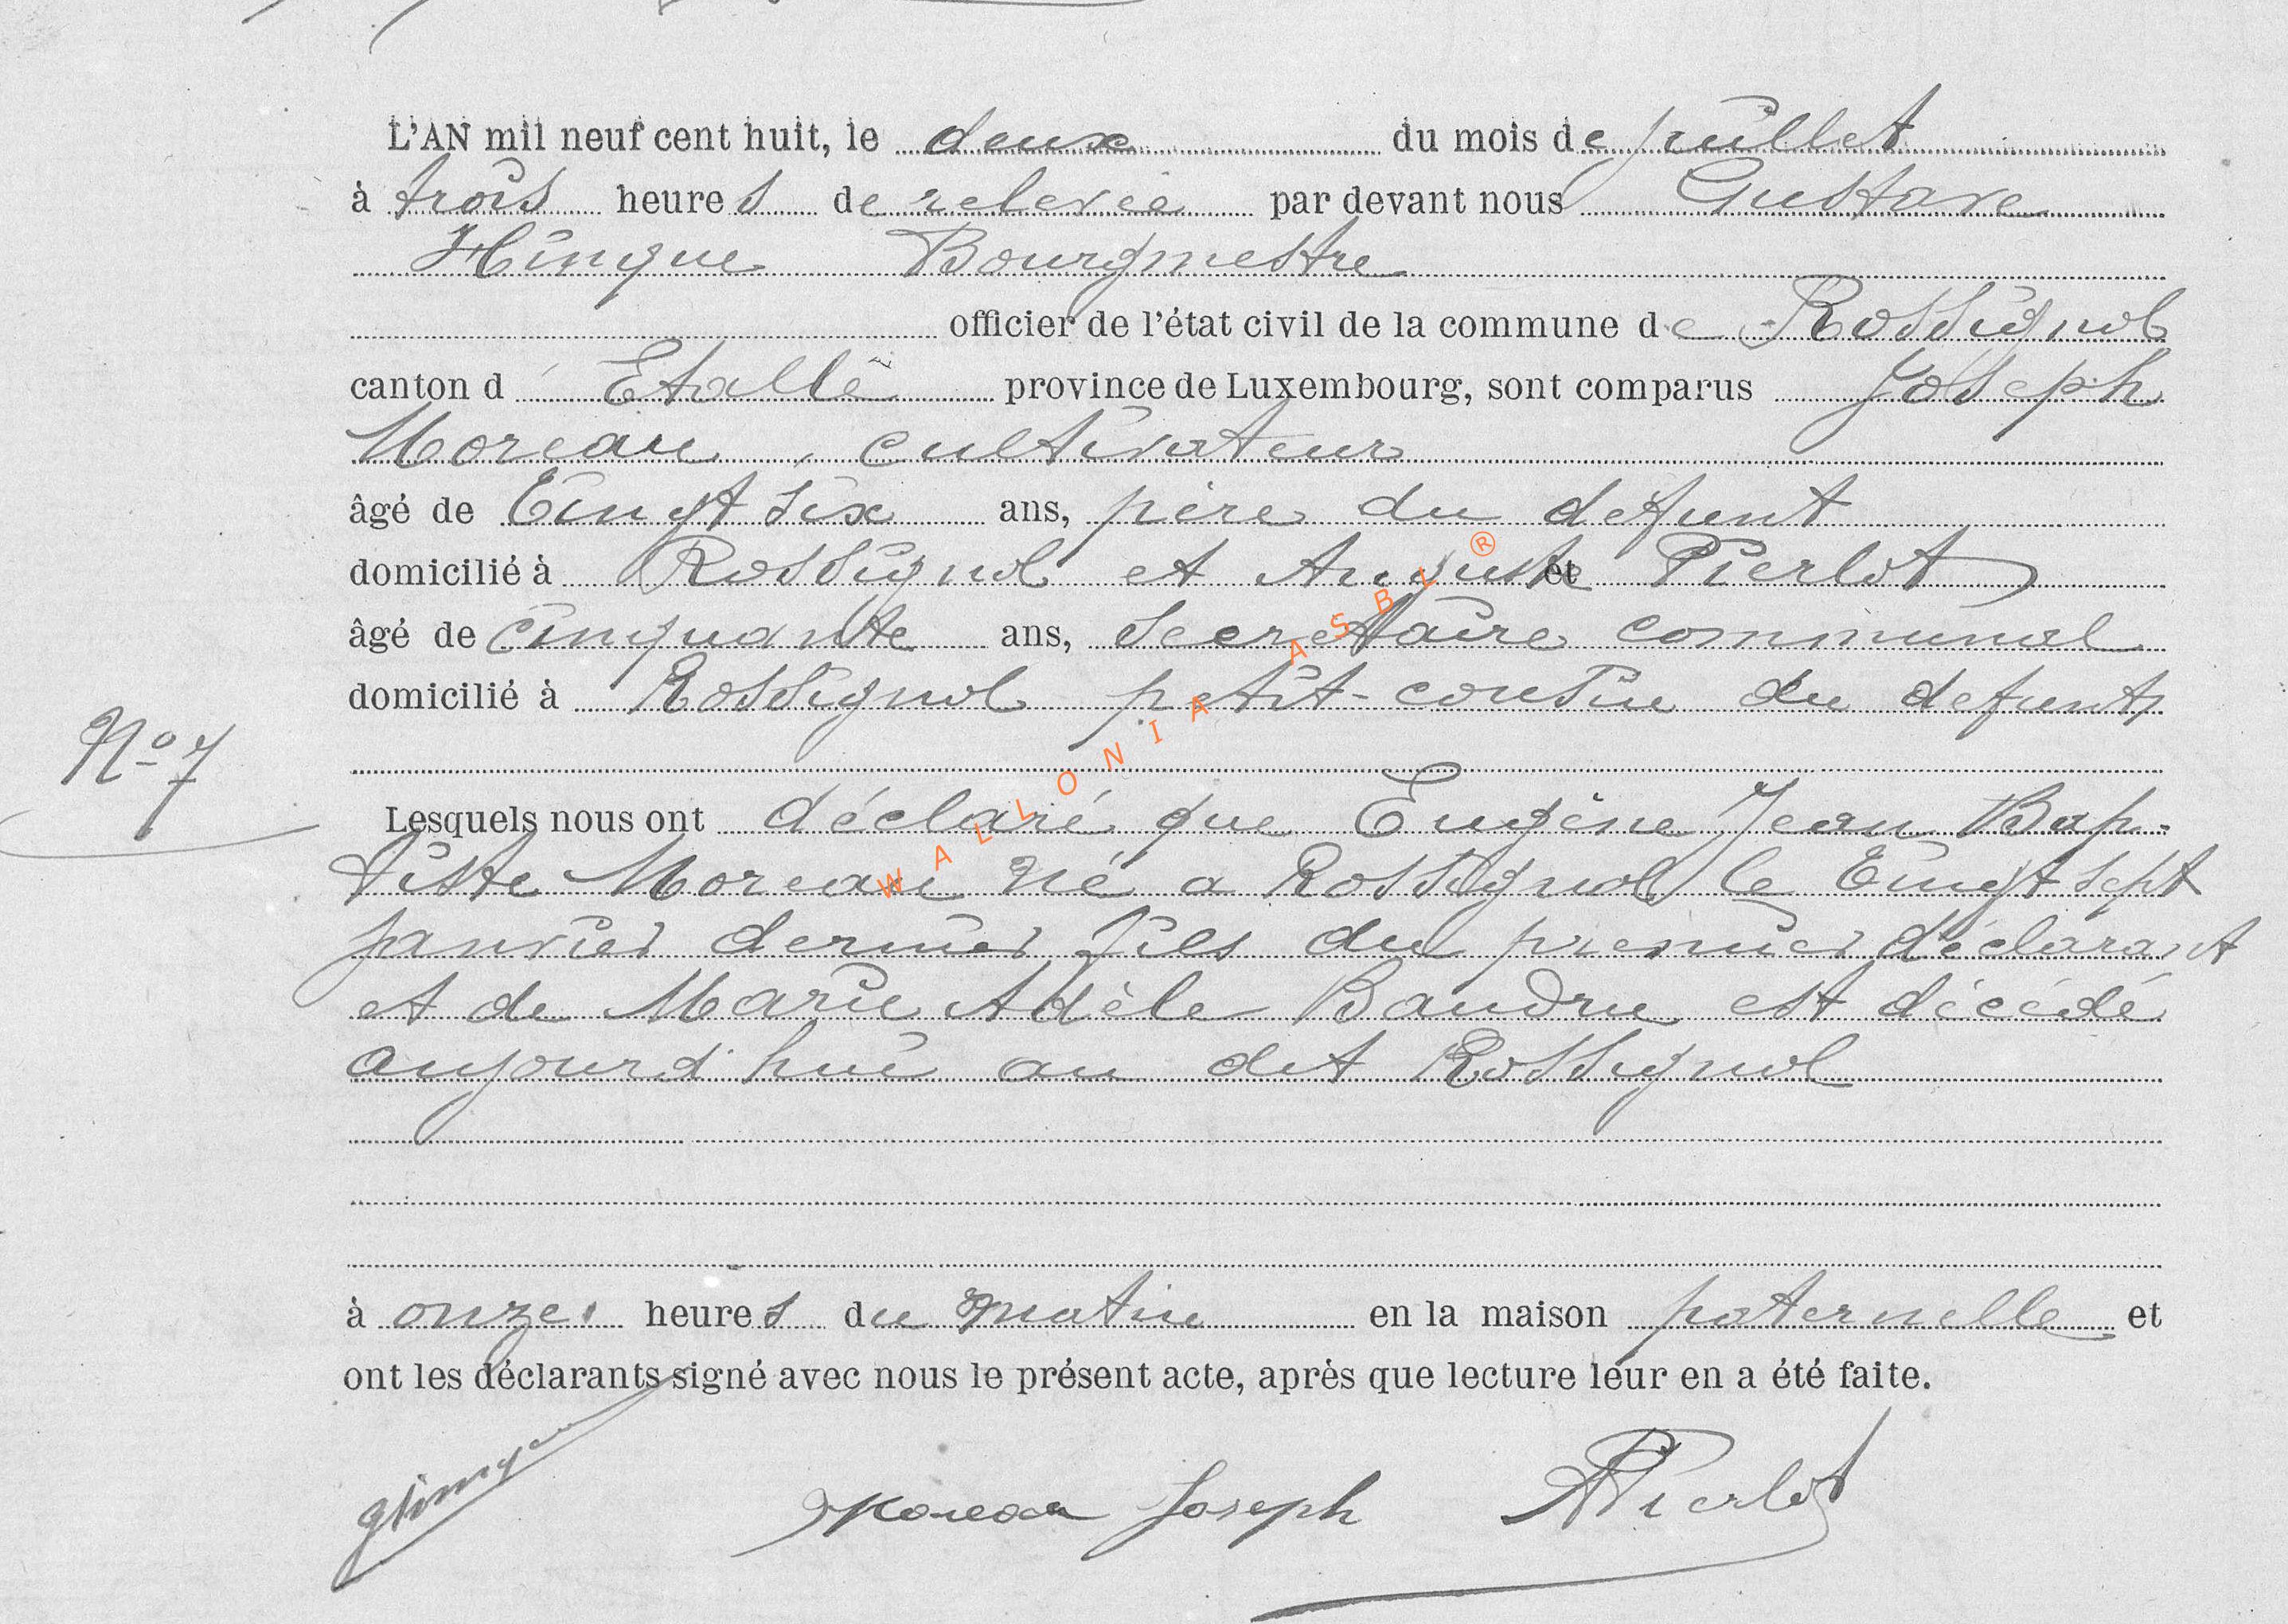 L'AN mil neuf cent huit, le deux du mois de juillet
à trois heures de relevée par devant nous Gustave
Hinque Bourgmestre
officier de l'état civil de la commune de Rossignol
canton d'Etalle province de Luxembourg, sont comparus Joseph
Moreau, cultivateur
âgé de Vingt six ans, père du defunt
domicilié à Rossignol et Auguste et Pierlot
âgé de cinquante ans, secretaire communal
domicilié à Rossignol petit-cousin du defunt
Nº 7
Lesquels nous ont déclaré que Eugène Jean Bap-
tiste Moreau né a Rossignol le Vingt sept
janvier dernier fils du premier déclarant
et de Marie Adèle Baudru est décédé
aujourd'hui au dit Rossignol
à onze heures du matin en la maison paternelle et
ont les déclarants signé avec nous le présent acte, après que lecture leur en a été faite.
Moreau Joseph APierlot
WALLONIA ASBL ®